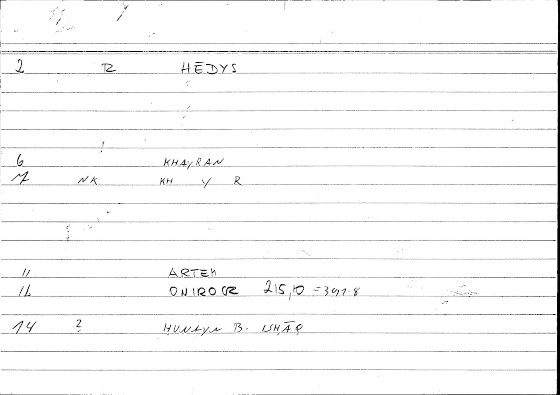 2 R HĒDYS
6 KHAYRAN
7 NK KH Y R
11 ARTEM
12 ONIROCR 215,10 = 391 8
14 2 HUNAYN B. ISHĀQ